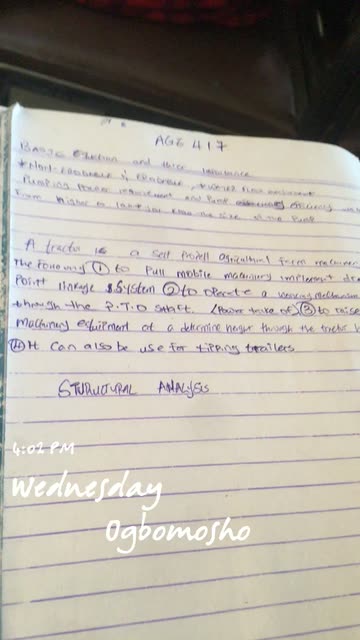 AGE 417
Basic Equation and their importance
*Non-Erodible & Erodible, *Weirs Flow
Pumping power requirement and Pump Efficiency
From higher to low
A tractor is a Self Propell agricultural farm machinery
the Following ① to Pull mobile machinery implement
Point linkage System ② to operate a
through the P.T.O Shaft. (Power take of) ③ to raise
machinery equipment at a determine height through the tractor
④ It can also be use for tipping trailers
STRUTURAL ANALYSIS
4:02 PM
Wednesday
Ogbomosho